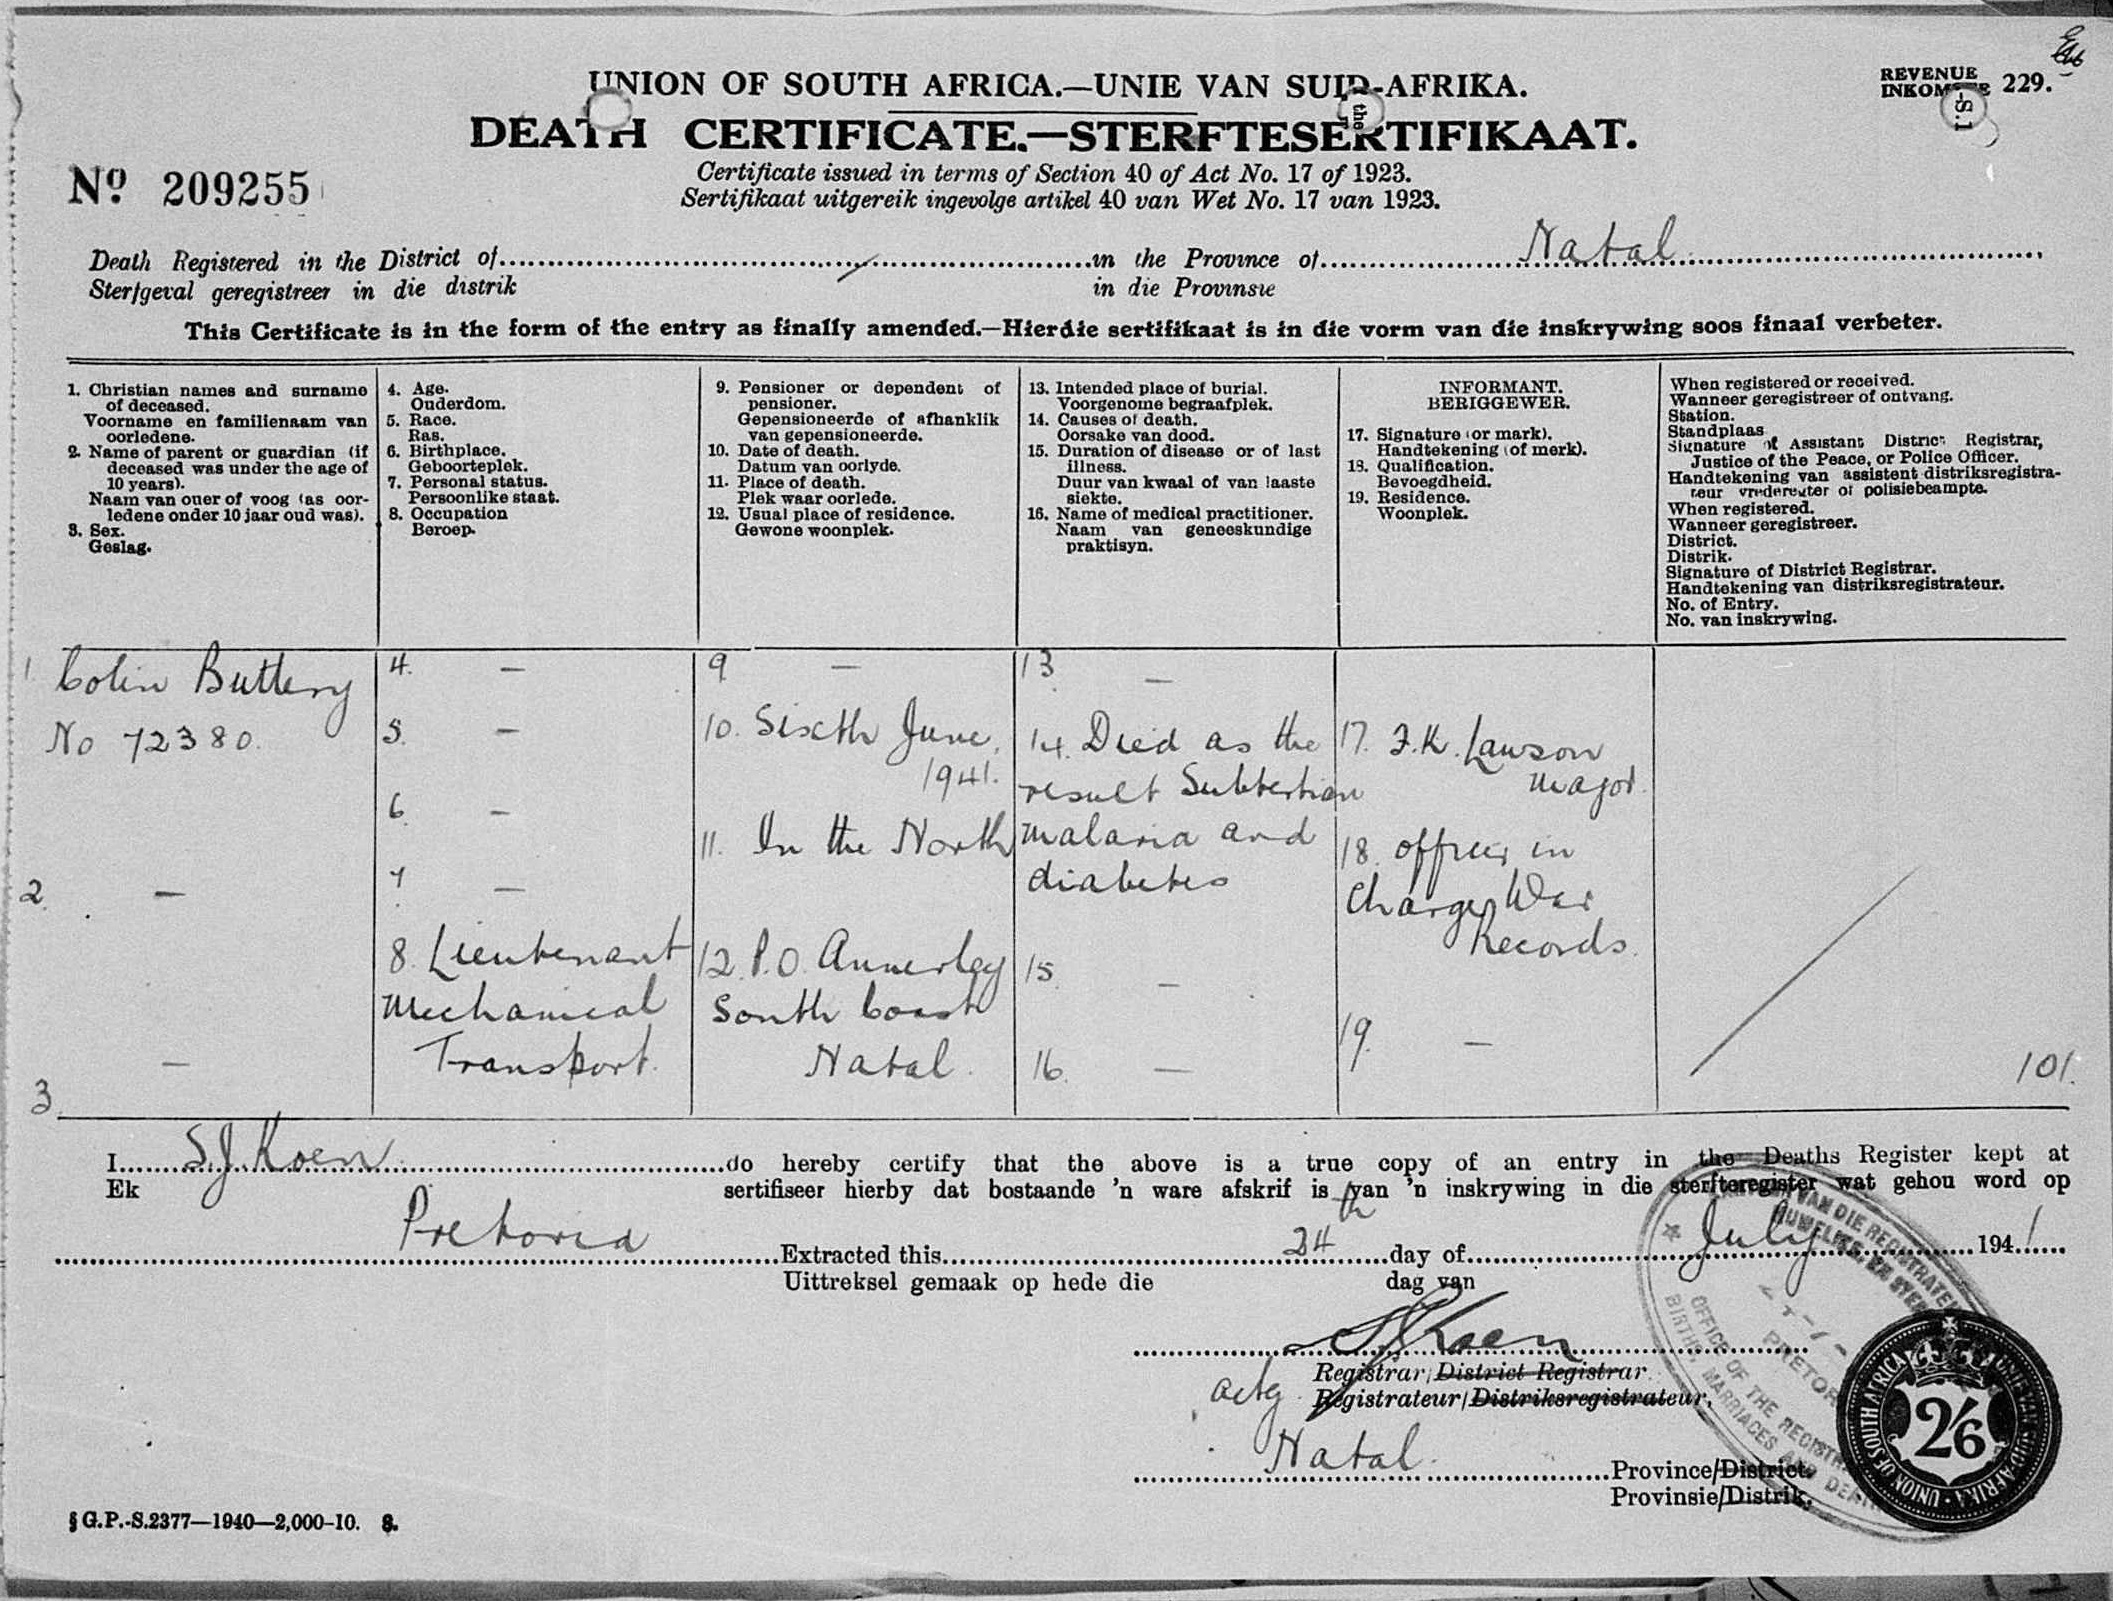 UNION OF SOUTH AFRICA.—UNIE VAN SUID-AFRIKA.
REVENUE
INKOMSTE 229.
DEATH CERTIFICATE.—STERFTESERTIFIKAAT.
Certificate issued in terms of Section 40 of Act No. 17 of 1923.
Sertifikaat uitgereik ingevolge artikel 40 van Wet No. 17 van 1923.
No. 209255
Death Registered in the District of in the Province of Natal
Sterfgeval geregistreer in die distrik in die Provinsie
This Certificate is in the form of the entry as finally amended.—Hierdie sertifikaat is in die vorm van die inskrywing soos finaal verbeter.
1. Christian names and surname
of deceased.
Voornaam en familienaam van
oorledene.
2. Name of parent or guardian (if
deceased was under the age of
10 years).
Naam van ouer of voog (as oor-
ledene onder 10 jaar oud was).
3. Sex.
Geslag.
4. Age.
Ouderdom.
5. Race.
Ras.
6. Birthplace.
Geboorteplek.
7. Personal status.
Persoonlike staat.
8. Occupation
Beroep.
9. Pensioner or dependent of
pensioner.
Gepensioneerde of afhanklik
van gepensioneerde.
10. Date of death.
Datum van oorlyde.
11. Place of death.
Plek waar oorlede.
12. Usual place of residence.
Gewone woonplek.
13. Intended place of burial.
Voorgenome begraafplek.
14. Causes of death.
Oorsake van dood.
15. Duration of disease or of last
illness.
Duur van kwaal of van laaste
siekte.
16. Name of medical practitioner.
Naam van geneeskundige
praktisyn.
INFORMANT.
BERIGGEWER.
17. Signature (or mark).
Handtekening (of merk).
18. Qualification.
Bevoegdheid.
19. Residence.
Woonplek.
When registered or received.
Wanneer geregistreer of ontvang.
Station.
Standplaas
Signature of Assistant District Registrar,
Justice of the Peace, or Police Officer.
Handtekening van assistent distriksregistra-
teur vrederegter of polisiebeampte.
When registered.
Wanneer geregistreer.
District.
Distrik.
Signature of District Registrar.
Handtekening van distriksregistrateur.
No. of Entry.
No. van inskrywing.
1 Colin Buttery
No 72380.
2. —
—
3.
4. —
5. —
6. —
7. —
8. Lieutenant
Mechanical
Transport.
9 —
10. Sixth June,
1941.
11. In the North
12. P.O. Annerley
South Coast
Natal.
13 —
14. Died as the
result Subtertian
malaria and
diabetes
15. —
16. —
17. F.K. Lawson
Major.
18. officer in
Charge War
Records.
19. —
101.
I S.J. Koen do hereby certify that the above is a true copy of an entry in the Deaths Register kept at
Ek sertifiseer hierby dat bostaande 'n ware afskrif is van 'n inskrywing in die sterfteregister wat gehou word op
Pretoria Extracted this 24th day of July 1941
Uittreksel gemaak op hede die dag van
SJKoen
Registrar/District Registrar
actg. Registrateur/Distriksregistrateur,
Natal. Province/District.
Provinsie/Distrik.
VAN DIE REGISTRATEUR
HUWELIKE EN
PRETORIA
OFFICE OF THE REGISTRAR
BIRTHS, MARRIAGES AND DEATHS
UNION OF SOUTH AFRICA · UNIE VAN SUID AFRIKA
2/6
§ G.P.-S.2377—1940—2,000-10. S.